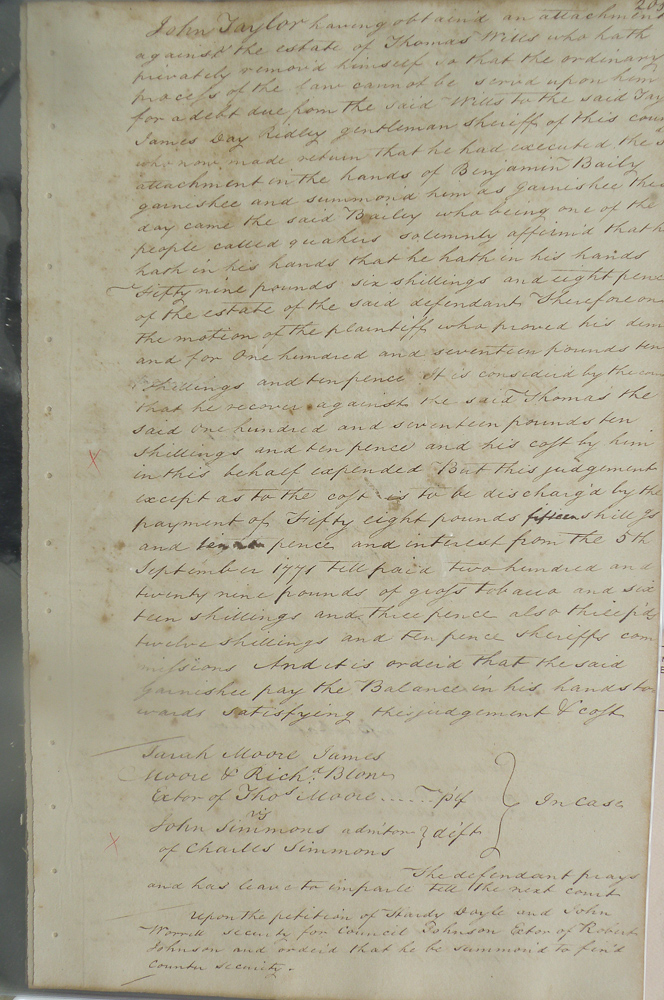 205
John Taylor having obtain'd an attachment
against the estate of Thomas Wills who hath
privately remov'd himself so that the ordinary
process of the law cannot be serv'd upon him
for a debt due from the said Wills to the said Tay
James Day Ridley gentleman sheriff of this coun
who now made return that he had executed the s
attachment in the hands of Benjamin Baily
garnishee and summon'd him as garnishee this
day came the said Bailey who being one of the
people called quakers solemnly affirm'd that h
hath in his hands that he hath in his hands
Fifty nine pounds six shillings and eight pence
of the estate of the said defendant Therefore on
the motion of the plaintiff who proved his dem
and for One hundred and seventeen pounds ten
shillings and ten pence It is consider'd by the cou
that he recover against the said Thomas the
said one hundred and seventeen pounds ten
shillings and ten pence and his cost by him
in this behalf expended But this judgement
except as to the cost is to be discharg'd by the
payment of Fifty eight pounds fifteen shillgs
and pence and interest from the 5th
September 1771 till paid two hundred and
twenty nine pounds of gross tobacco and six
teen shillings and three pence also three pds
twelve shillings and ten pence sheriffs com
missions And it is order'd that the said
garnishee pay the Balance in his hands to
wards satisfying this judgement & cost
Sarah Moore James
Moore & Richd. Blow
Exter of Thos Moore ...... plf
vs
In Case
John Simmons admtor deft
of Charles Simmons
The defendant prays
and has leave to imparle till the next court
Upon the petition of Hardy Doyle and John
Worrell security for Council Johnson Extor of Robert
Johnson and order'd that he be summon'd to find
counter security.